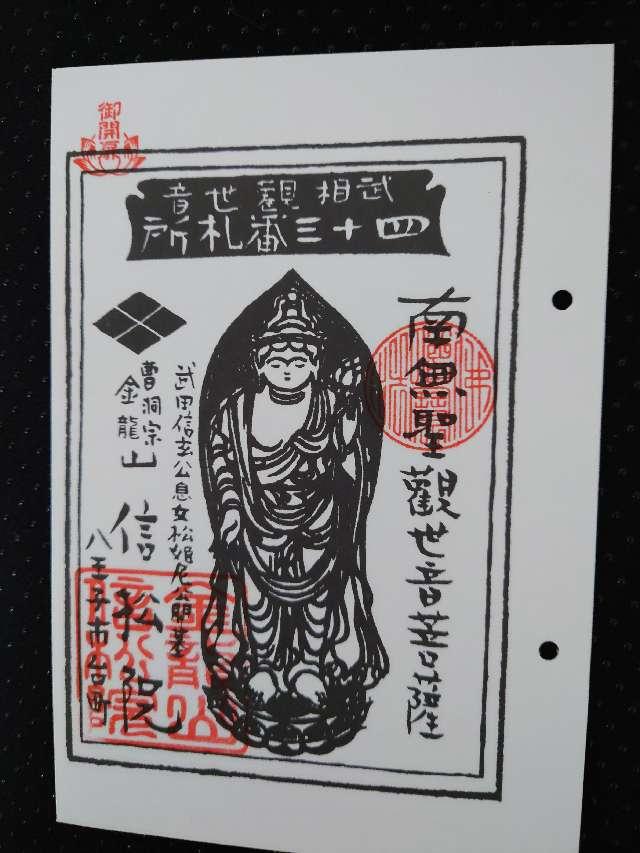 御開扉
武相観世音
四十三番札所
南無聖観世音菩薩
武田信玄公息女松姫尼公開基
曹洞宗
金龍山
信松院
八王子市台町